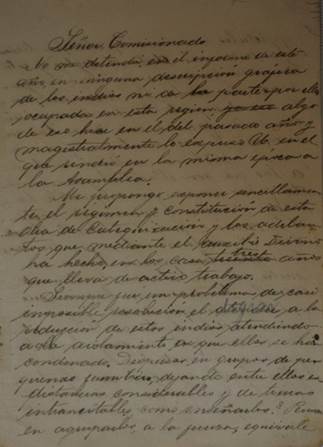 Señor Comisionado
No me detendré en el informe de este
año en ninguna descripción prolija
de los indios ni de la parte por ellos
ocupada en esta región algo
de eso hice en el del pasado año y
magistralmente lo expuso Ud. en el
que rindió en la misma época a
la Asamblea.
Me propongo exponer sencillamen-
te, el régimen y constitución de esta
obra de Catequización y los adelan-
tos que, mediante el auxilio Divino
ha hecho, en los casi tres años
que lleva de activo trabajo.
Siempre fue un problema de casi
imposible resolución el a la
reducción de estos indios atendiendo
a el aislamiento en que ellos se han
condenado. Divididos en grupos de pe-
queñas familias, dejando entre ellos
distancias considerables y de
intransitables como enseñarlos?
en agruparlos a la fuerza, equivale